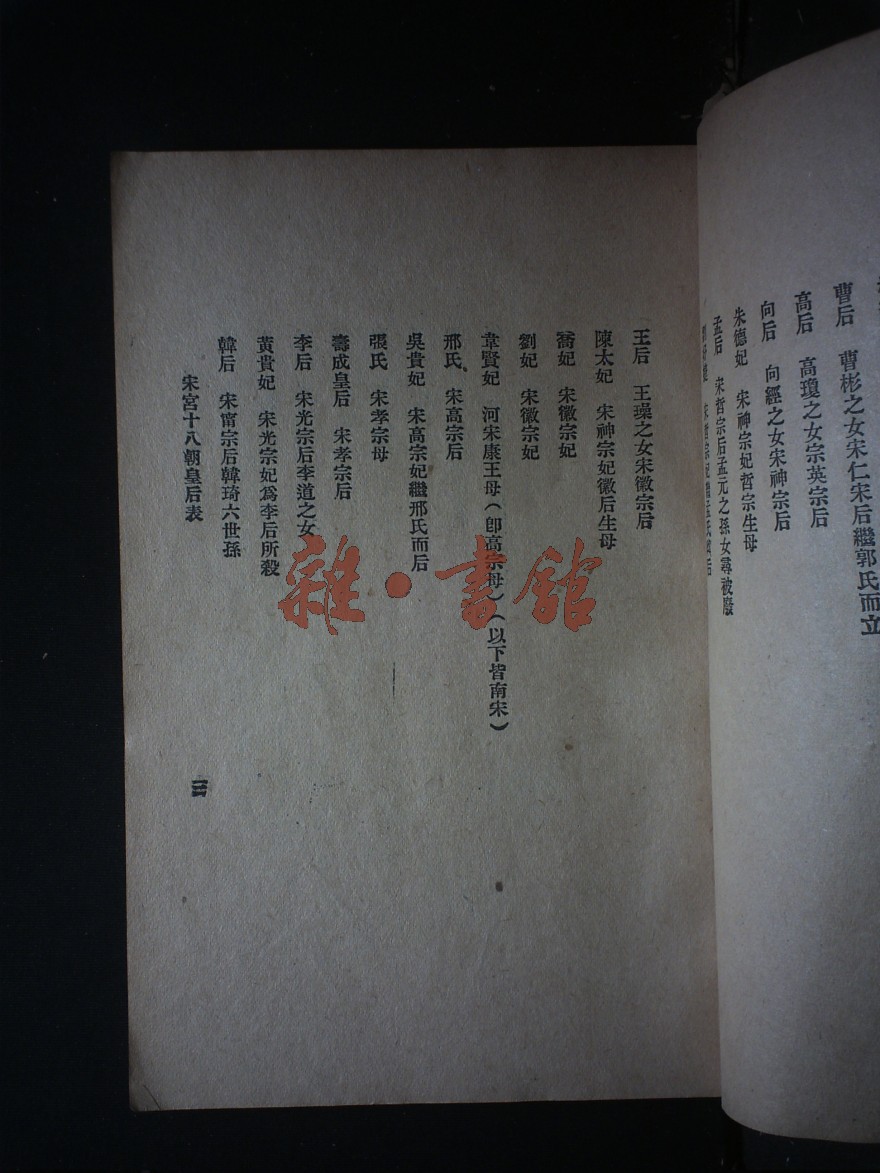 曹后　曹彬之女宋仁宋后繼郭氏而立
高后　高瓊之女宗英宗后
向后　向經之女宋神宗后
朱德妃　宋神宗妃哲宗生母
孟后　宋哲宗后孟元之孫女尋被廢
王后　王璪之女宋徽宗后
陳太妃　宋神宗妃徽后生母
喬妃　宋徽宗妃
劉妃　宋徽宗妃
韋賢妃　河宋康王母（卽高宗母）（以下皆南宋）
邢氏　宋高宗后
吳貴妃　宋高宗妃繼邢氏而后
張氏　宋孝宗母
壽成皇后　宋孝宗后
李后　宋光宗后李道之女
黃貴妃　宋光宗妃爲李后所殺
韓后　宋甯宗后韓琦六世孫
宋宮十八朝皇后表
三
雜·書館